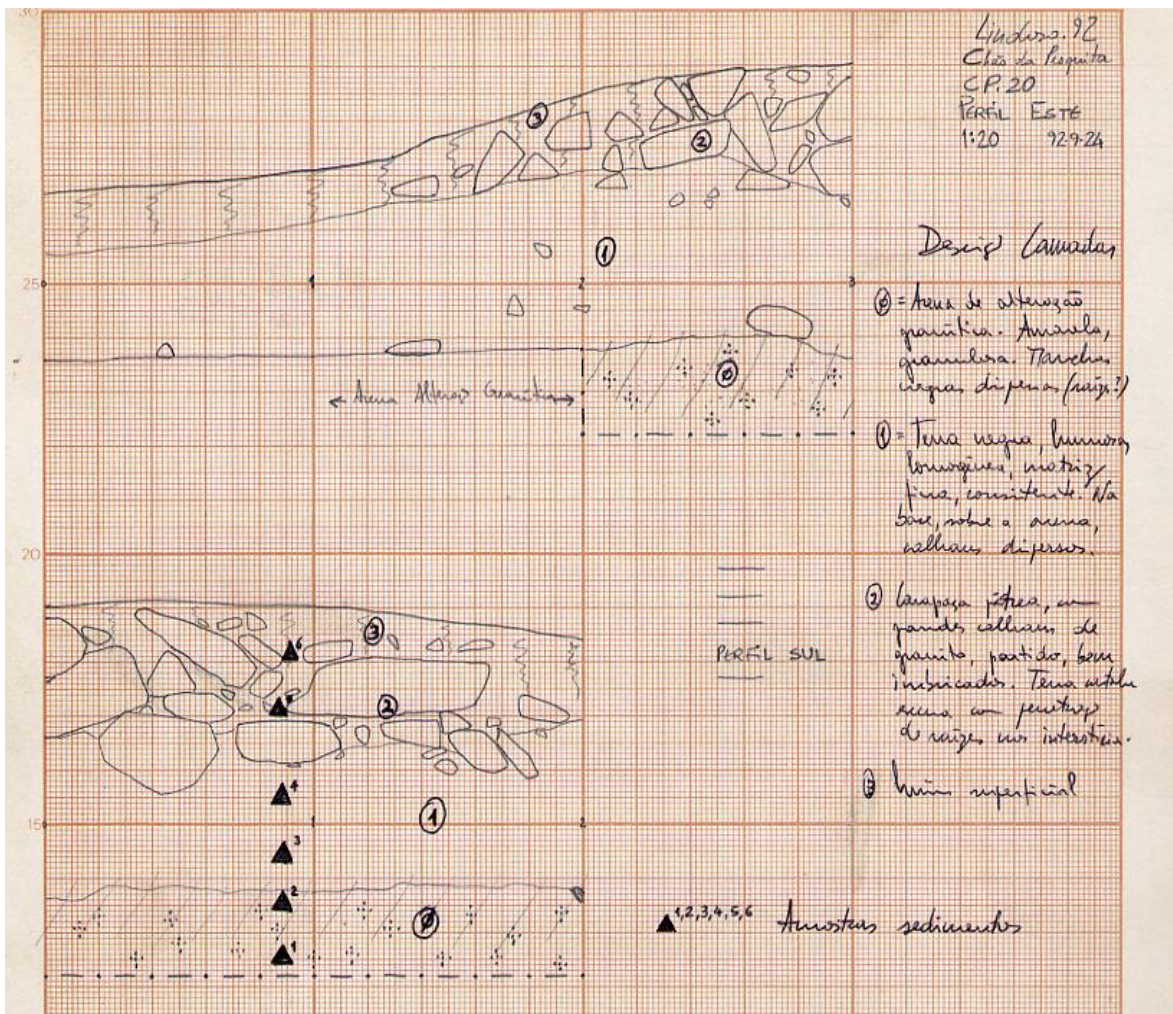 Lindoso.92
Chão da Pisquita
CP.20
PERFIL ESTE
1:20 92.9.24
30
3
2
1
25
1
2
3
Descrição Camadas
Ø = Arena de alteração
granítica. Amarela,
granulosa. Manchas
negras dispersas (raízes?)
Ø
← Arena Alteração Granítica →
1 = Terra negra, humosa,
homogénea, matriz
fina, consistente. Na
base, sobre a arena,
calhaus dispersos.
20
2 Carapaça pétrea, com
grandes calhaus de
granito, partido, bem
imbricados. Terra
escura com penetração
de raízes nos interstícios.
3 húmus superficial
PERFIL SUL
3
6
2
5
4
1
15
1
2
3
2
Ø
1
1,2,3,4,5,6 Amostras sedimentos